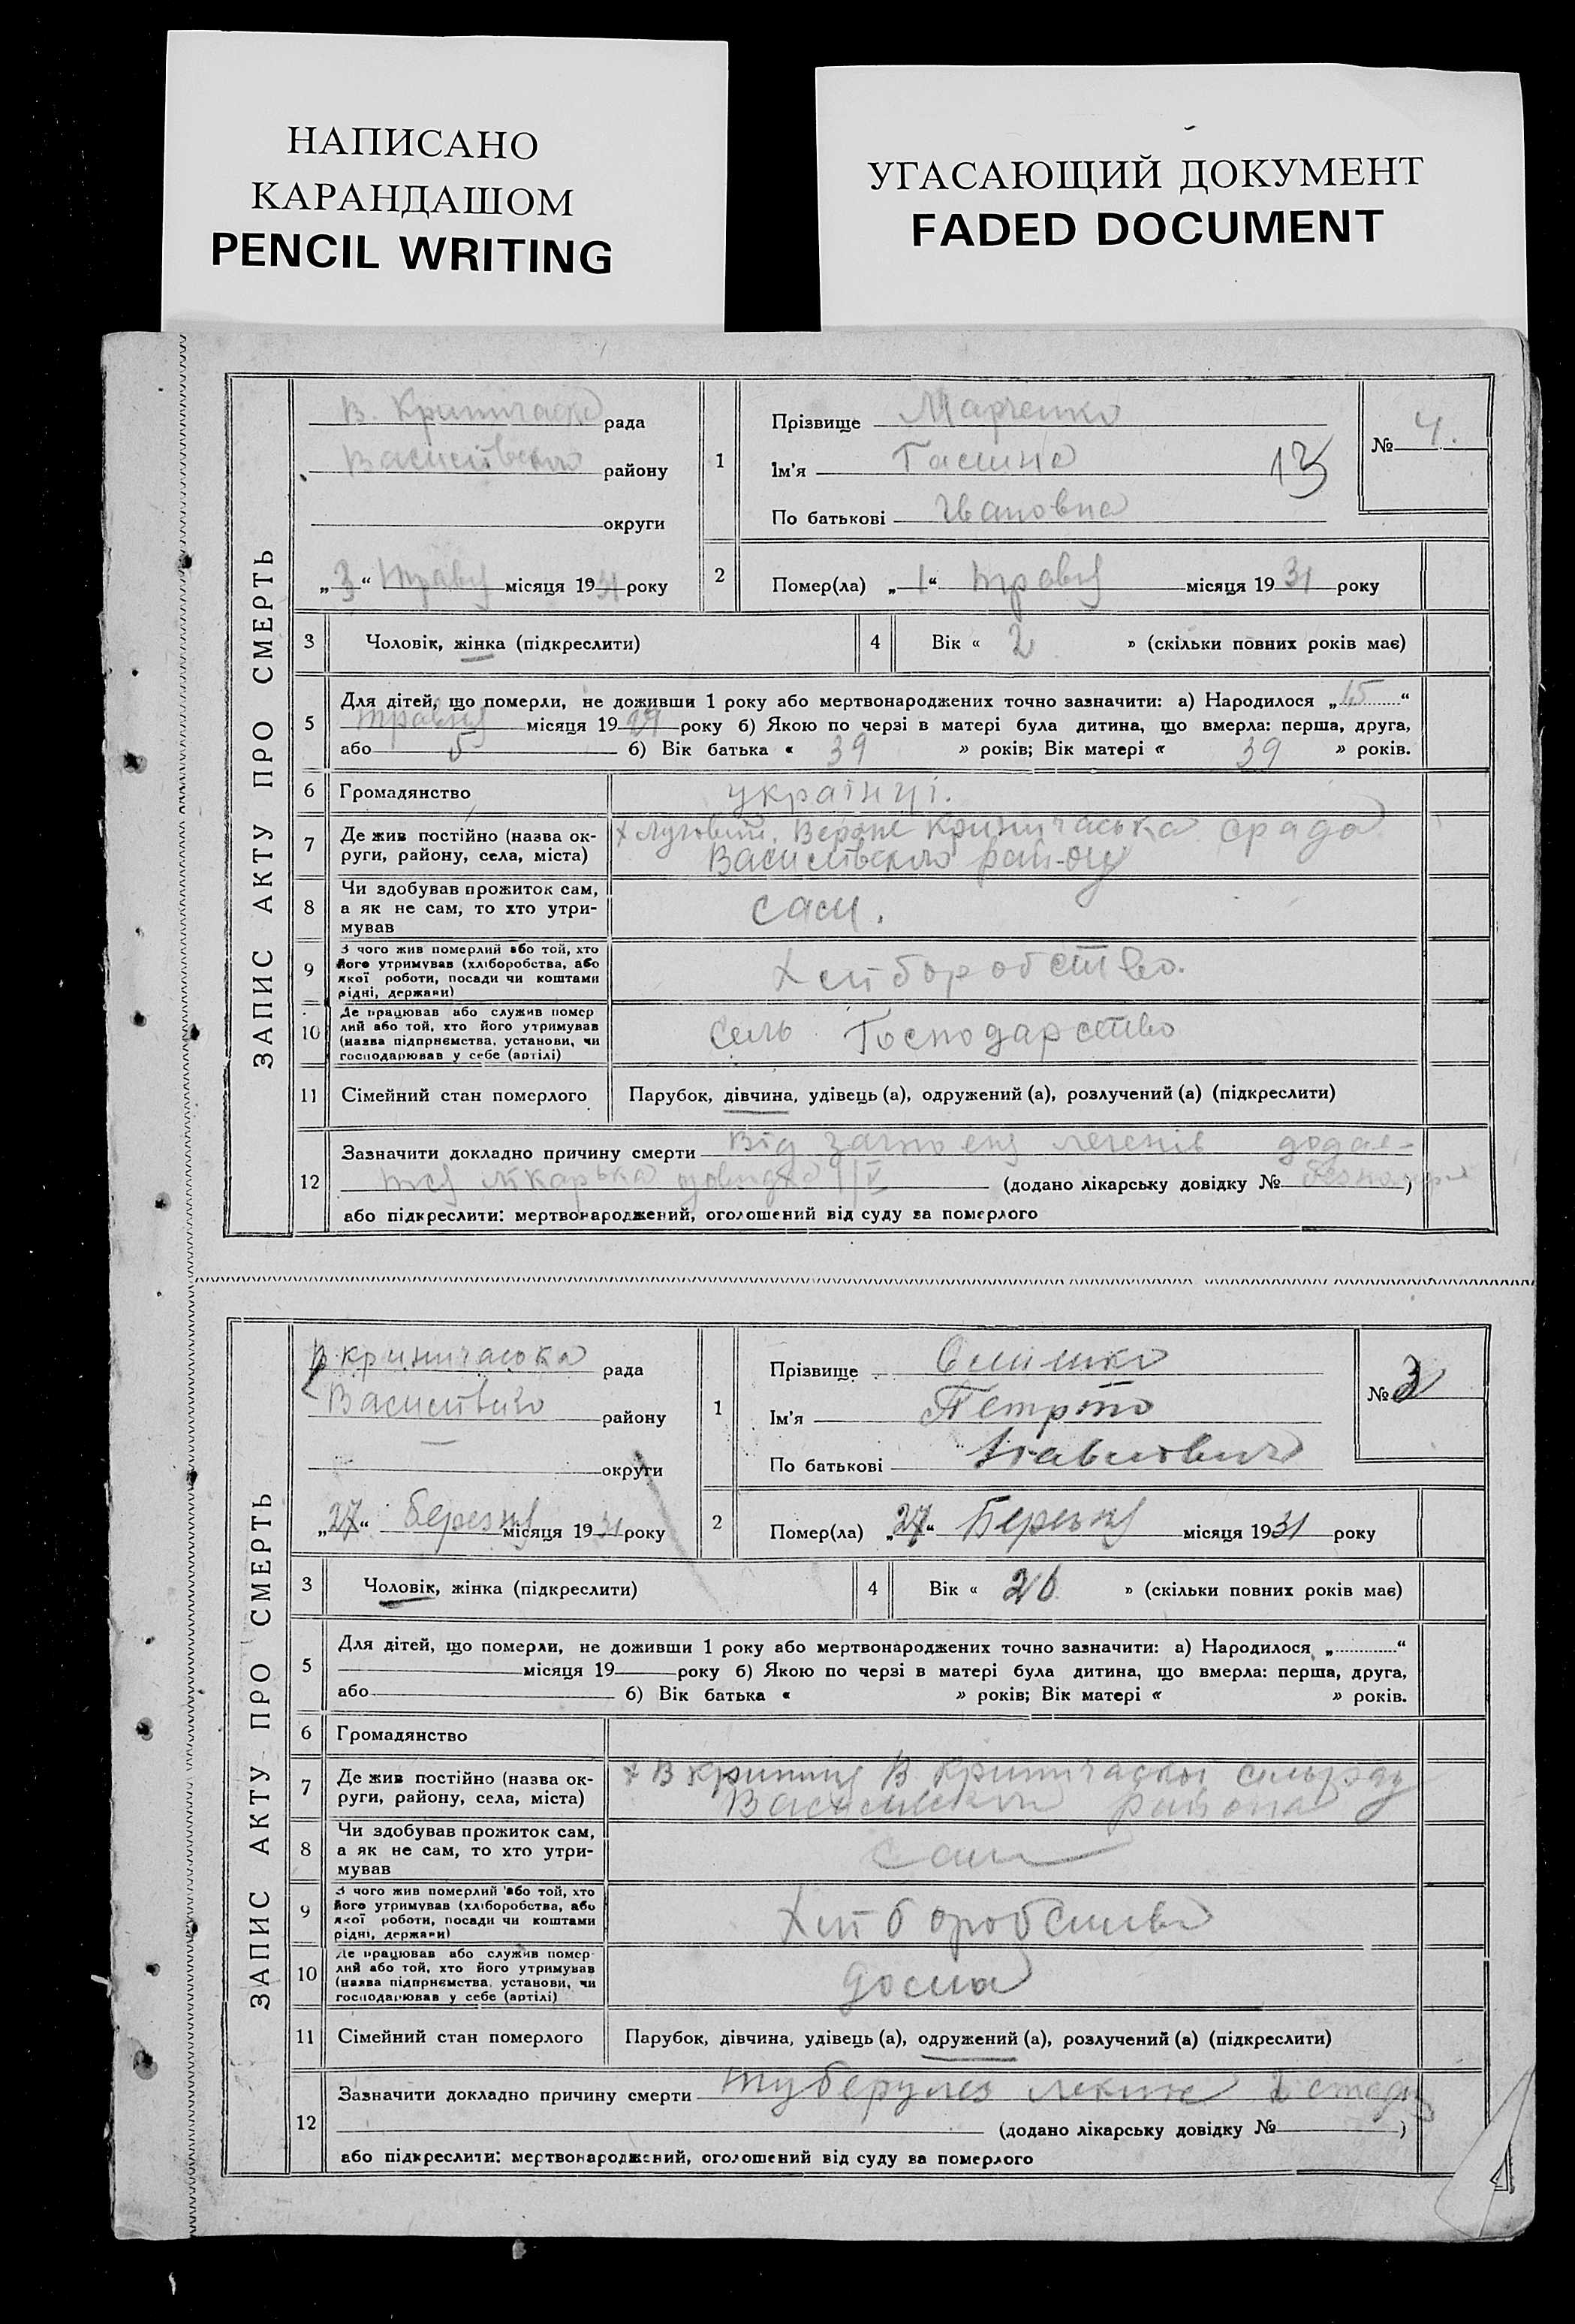 НАПИСАНО
КАРАНДАШОМ
PENCIL WRITING
УГАСАЮЩИЙ ДОКУМЕНТ
FADED DOCUMENT
ЗАПИС АКТУ ПРО СМЕРТЬ
В. Криничаска рада
Василівського району
округи
„3“ травня місяця 1931 року
1
Прізвище Марченко
Ім'я Галина 13
По батькові Івановна
№ 4.
2
Помер(ла) „1“ травня місяця 1931 року
3 Чоловік, жінка (підкреслити)
4 Вік « 2 » (скільки повних років має)
5 Для дітей, що померли, не доживши 1 року або мертвонароджених точно зазначити: а) Народилося „15“
травня місяця 1929 року б) Якою по черзі в матері була дитина, що вмерла: перша, друга,
або 5 б) Вік батька « 39 » років; Вік матері « 39 » років.
6 Громадянство українці.
7 Де жив постійно (назва ок-
руги, району, села, міста)
х Луговий. Верхне Криничаська срада
Василівського рай-ну
8 Чи здобував прожиток сам,
а як не сам, то хто утри-
мував
сам.
9 З чого жив померлий або той, хто
його утримував (хліборобства, або
якої роботи, посади чи коштами
рідні, держави)
Хліборобство.
10 Де працював або служив помер
лий або той, хто його утримував
(назва підприємства, установи, чи
господарював у себе (артілі)
Сель Господарство
11 Сімейний стан померлого Парубок, дівчина, удівець (а), одружений (а), розлучений (а) (підкреслити)
12 Зазначити докладно причину смерти Від легенів додае-
тся лікарька довидка 1/V (додано лікарську довідку № без номеря)
або підкреслити: мертвонароджений, оголошений від суду за померлого
ЗАПИС АКТУ ПРО СМЕРТЬ
В криничаська рада
Василівського району
округи
„27“ березня місяця 1931 року
1
Прізвище
Ім'я Петро
По батькові Павлович
№ 3
2
Помер(ла) „27“ Березня місяця 1931 року
3 Чоловік, жінка (підкреслити)
4 Вік « 26 » (скільки повних років має)
5 Для дітей, що померли, не доживши 1 року або мертвонароджених точно зазначити: а) Народилося „ “
місяця 19 року б) Якою по черзі в матері була дитина, що вмерла: перша, друга,
або б) Вік батька « » років; Вік матері « » років.
6 Громадянство
7 Де жив постійно (назва ок-
руги, району, села, міста)
х В криниця В Криничаскої сельради
Василівского района
8 Чи здобував прожиток сам,
а як не сам, то хто утри-
мував
сам
9 З чого жив померлий або той, хто
його утримував (хліборобства, або
якої роботи, посади чи коштами
рідні, держави)
Хліборобства
10 Де працював або служив помер
лий або той, хто його утримував
(назва підприємства, установи, чи
господарював у себе (артілі)
дома
11 Сімейний стан померлого Парубок, дівчина, удівець (а), одружений (а), розлучений (а) (підкреслити)
12 Зазначити докладно причину смерти туберулез
(додано лікарську довідку № )
або підкреслити: мертвонароджений, оголошений від суду за померлого